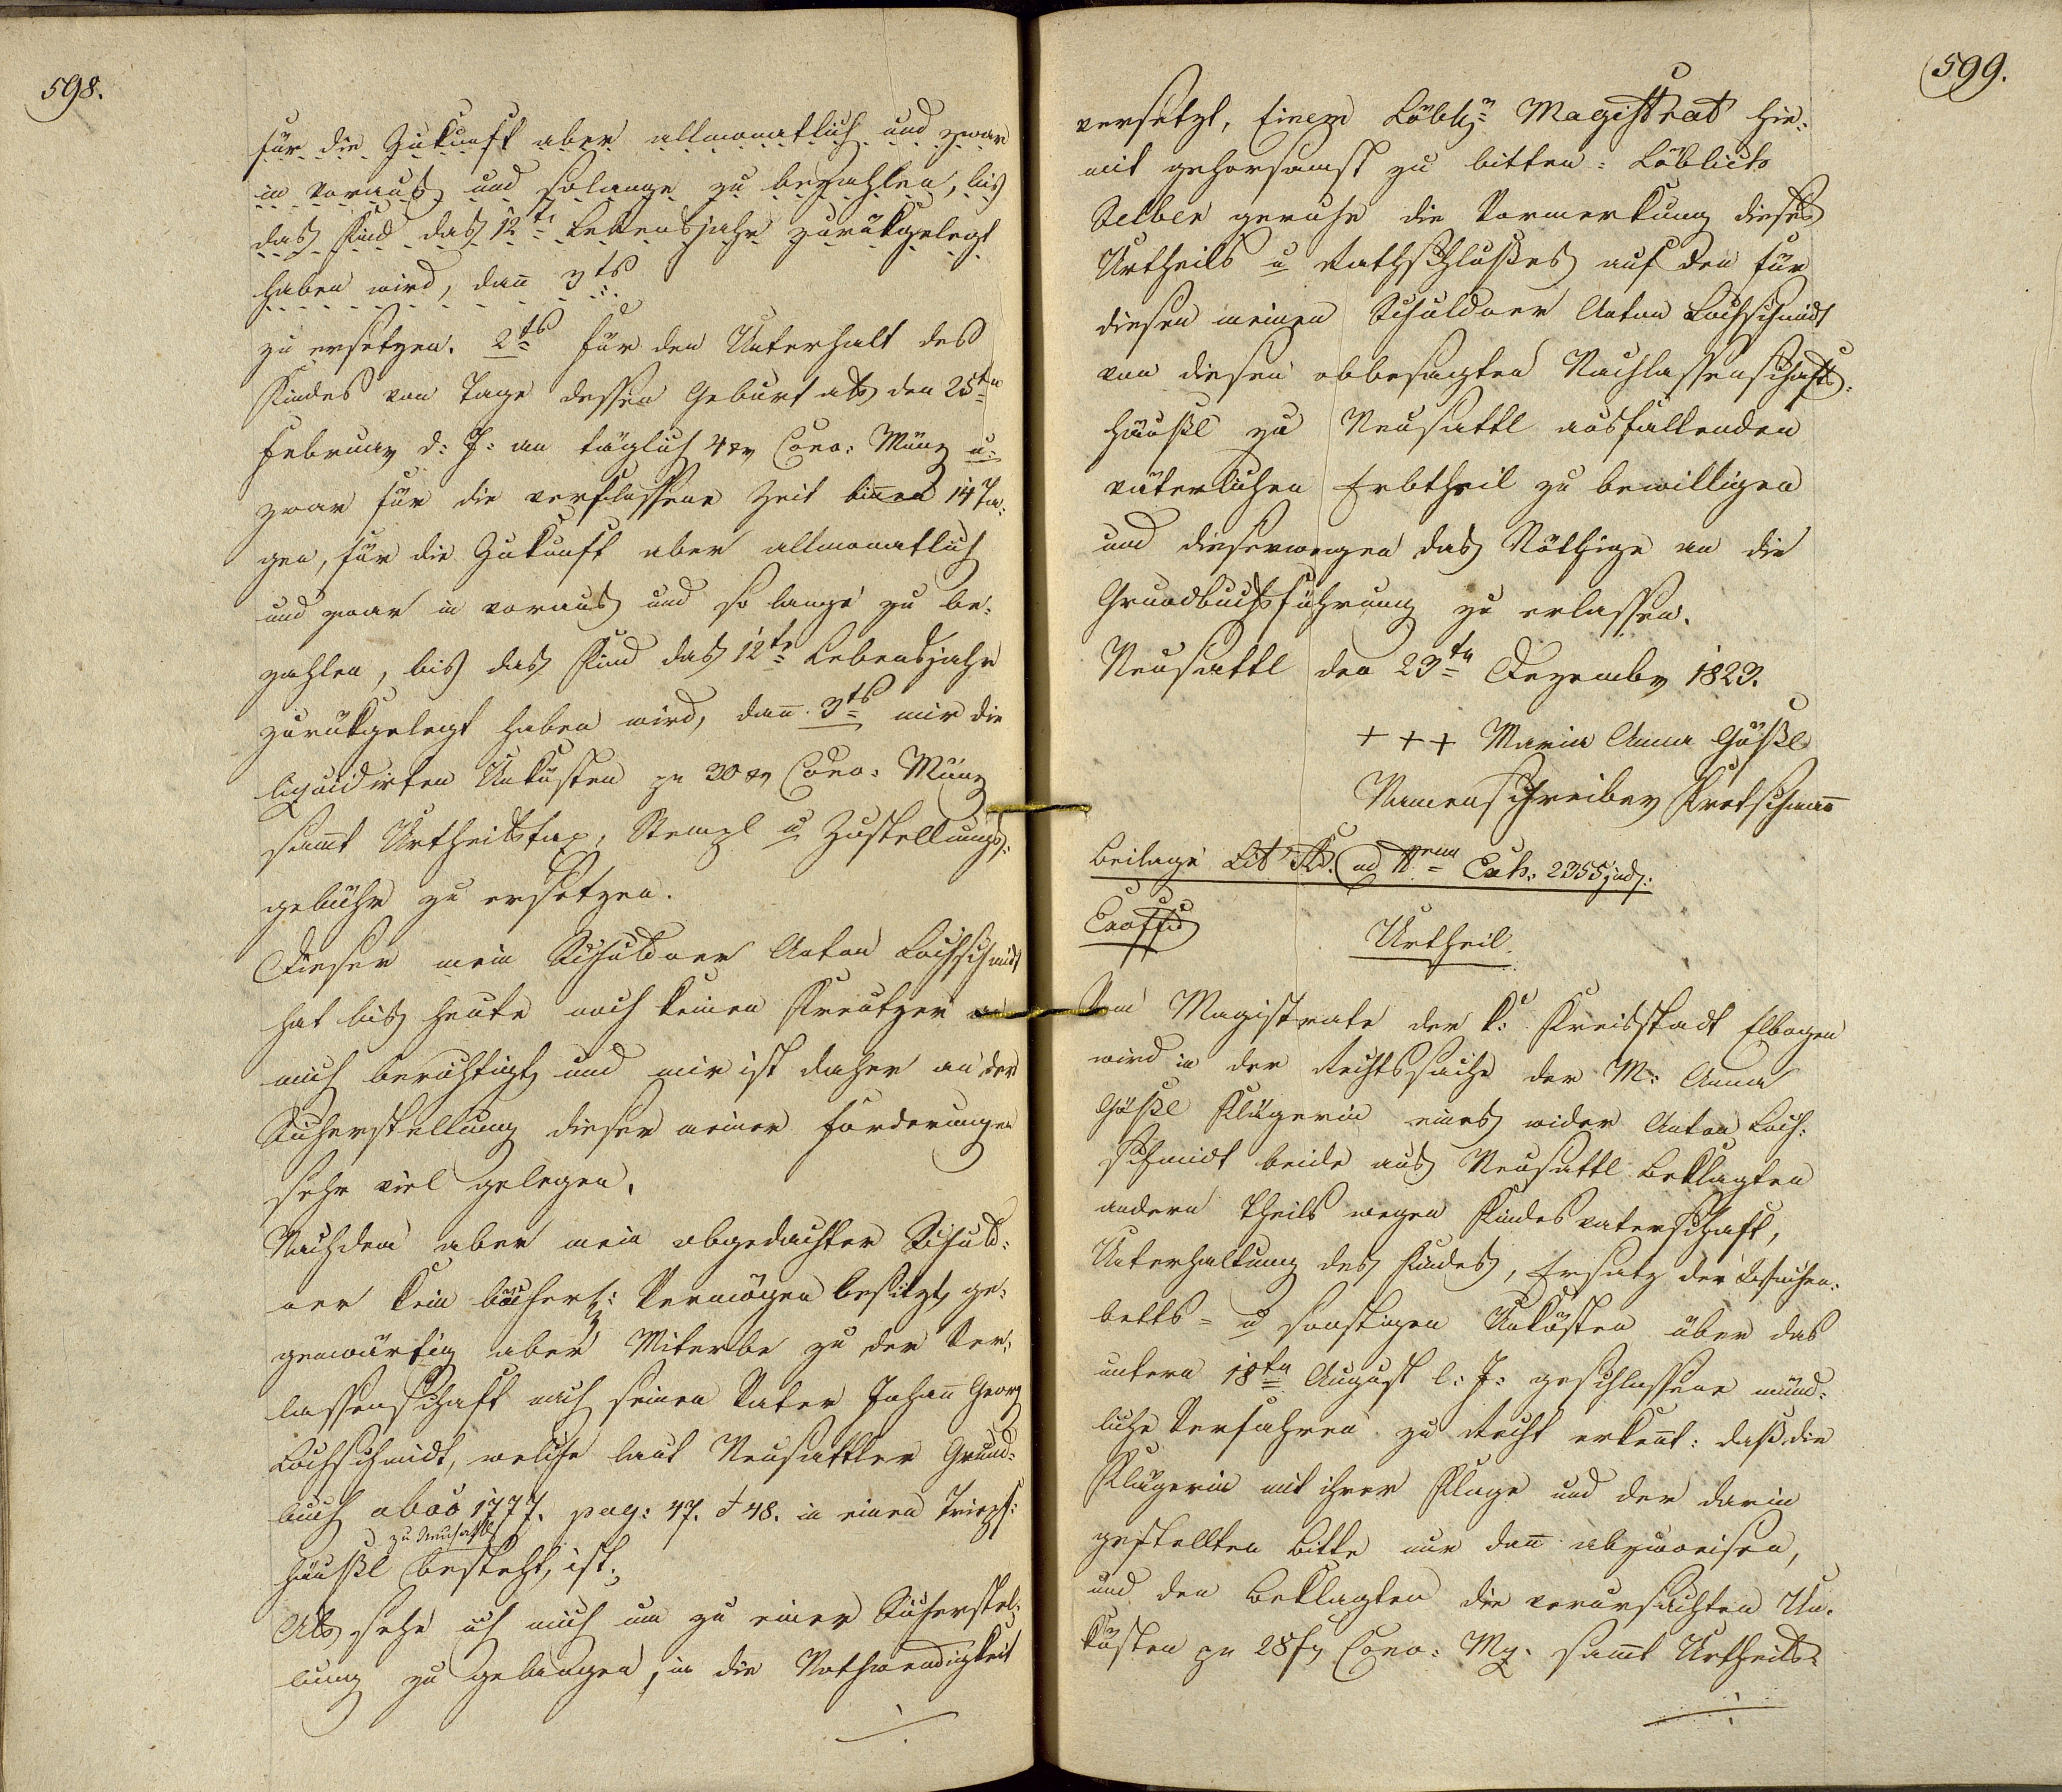 598.
für die Zukunft aber allmonatlich und zwar
in voraus und solange zu bezahlen, bis
das Kind das 12te Lebensjahr zurükgelegt
haben wird, dan̄ 3tς
zu ersetzen. 2tς für den Unterhalt des
Kindes vom Tage dessen Geburt als den 25tn
Februar d: J: an täglich 4 xr Conv: Münz u:
zwar für die verflossene Zeit bin̄en 14 Ta-
gen, für die Zukunft aber allmonatlich
und zwar in voraus und so lange zu be-
zahlen, bis das Kind das 12te Lebensjahr
zurükgelegt haben wird, dan̄ 3tς mir die
liquidirten Unkösten pr 30 xr Conv: Münz
sam̄t Urtheilstax, Stempl u Zustellungs-
gebühr zu ersetzen.
Dieser mein Schuldner Anton Lochschmidt
hat bis heute noch keinen Kreutzer an
mich berichtigt, und mir ist daher an der
Sicherstellung dieser meiner Forderungen
sehr viel gelegen.
Nachdem aber mein obgedachter Schuld-
ner kein Vermögen besitzt, ge-
genwärtig aber Miterbe zu der Ver-
lassenschaft nach seinem Vater Johan̄ Georg
Lochschmidt, welche laut Neusattler Grund-
buch abos 1777. pag: 47. & 48. in einem
zu Neusattl
Häußl besteht, ist;
Als sehe ich mich um zu einer Sicherstel-
lung zu gelangen, in die Nothwendigkeit
599.
versetzt, Einem Löbln Magistrat hie-
mit gehorsamst zu bitten: Löblicht
Selber geruhe die Vormerkung dieses
Urtheils u Rathschlußes auf den für
diesen meinen Schuldner Anton Lochschmidt
von diesem obbesagten Nachlassenschafts-
Häußl zu Neusattl ausfallenden
väterlichen Erbtheil zu bewilligen
und dieserwegen das Nöthige an die
Grundbuchsführung zu erlassen.
Neusattl den 23tn Dezember 1823.
+++ Maria Anna Gößl
Namenschreiber Kretschman̄
Beilage Lit ad Nrum Exh: 2355 jud:
Urtheil.
Vom Magistrate der k: Kreisstadt Elbogen
wird in der Rechtssache der M: Anna
Gößl Klägerin eines wider Anton Loch-
schmidt beide aus Neusattl Beklagten
andern Theils wegen Kindesvaterschaft,
Unterhaltung des Kindes, Ersatz der Wochen-
betts- u sonstigen Unkösten über das
untern 18tn August l: J: geschlossene münd-
liche Verfahren zu Recht erkan̄t: daß die
Klägerin mit ihrer Klage und der darin
gestellten Bitte nur dan̄ abzuweisen,
und dem Beklagten die verursachten Un-
kösten pr 28 f Conv: Mz. sam̄t Urtheils-